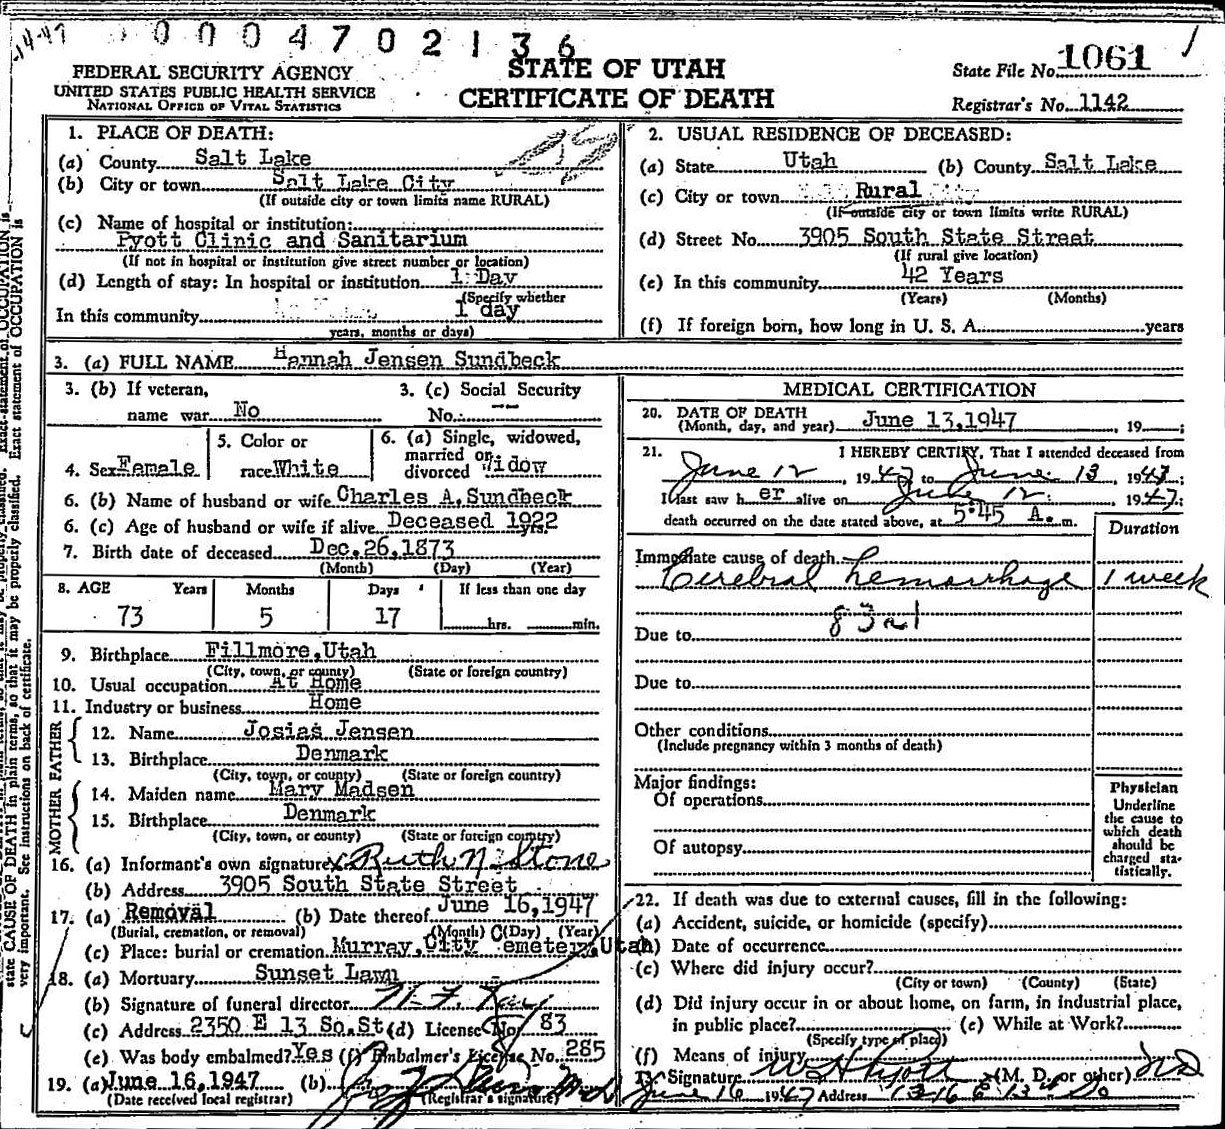 -14-47
0004702136
FEDERAL SECURITY AGENCY
UNITED STATES PUBLIC HEALTH SERVICE
NATIONAL OFFICE OF VITAL STATISTICS
STATE OF UTAH
CERTIFICATE OF DEATH
State File No. 1061
Registrar's No. 1142
1. PLACE OF DEATH:
(a) County Salt Lake
(b) City or town Salt Lake City
(If outside city or town limits name RURAL)
(c) Name of hospital or institution:
Pyott Clinic and Sanitarium
(If not in hospital or institution give street number or location)
(d) Length of stay: In hospital or institution 1 Day
(Specify whether
In this community 1 day
years, months or days)
2. USUAL RESIDENCE OF DECEASED:
(a) State Utah (b) County Salt Lake
(c) City or town Rural
(If outside city or town limits write RURAL)
(d) Street No. 3905 South State Street
(If rural give location)
(e) In this community 42 Years
(Years) (Months)
(f) If foreign born, how long in U. S. A. years
3. (a) FULL NAME Hannah Jensen Sundbeck
3. (b) If veteran, 3. (c) Social Security
name war No No.: --
4. Sex Female
5. Color or
race White
6. (a) Single, widowed,
married or
divorced Widow
6. (b) Name of husband or wife Charles A. Sundbeck
6. (c) Age of husband or wife if alive Deceased 1922 yrs.
7. Birth date of deceased Dec. 26, 1873
(Month) (Day) (Year)
8. AGE Years Months Days If less than one day
73 5 17 hrs. min.
9. Birthplace Fillmore, Utah
(City, town, or county) (State or foreign country)
10. Usual occupation At Home
11. Industry or business Home
FATHER
12. Name Josias Jensen
13. Birthplace Denmark
(City, town, or county) (State or foreign country)
MOTHER
14. Maiden name Mary Madsen
15. Birthplace Denmark
(City, town, or county) (State or foreign country)
16. (a) Informant's own signature x Ruth N. Stone
(b) Address 3905 South State Street
17. (a) Removal (b) Date thereof June 16, 1947
(Burial, cremation, or removal) (Month) (Day) (Year)
(c) Place: burial or cremation Murray, City Cemetery, Utah
18. (a) Mortuary Sunset Lawn
(b) Signature of funeral director
(c) Address 2350 E 13 So. St (d) License No. 83
(e) Was body embalmed? Yes (f) Embalmer's License No. 285
19. (a) June 16, 1947 (b)
(Date received local registrar) (Registrar's signature)
MEDICAL CERTIFICATION
20. DATE OF DEATH
(Month, day, and year) June 13, 1947 , 19 ;
21. I HEREBY CERTIFY, That I attended deceased from
June 12, 1947 to June 13 1947;
I last saw h er alive on June 12 1947;
death occurred on the date stated above, at 5:45 A. m.
Duration
Immediate cause of death
Cerebral hemorrhage 1 week
832 1
Due to
Due to
Other conditions
(Include pregnancy within 3 months of death)
Major findings:
Of operations
Of autopsy
Physician
Underline
the cause to
which death
should be
charged sta-
tistically.
22. If death was due to external causes, fill in the following:
(a) Accident, suicide, or homicide (specify)
(b) Date of occurrence
(c) Where did injury occur?
(City or town) (County) (State)
(d) Did injury occur in or about home, on farm, in industrial place,
in public place? (e) While at Work?
(Specify type of place)
(f) Means of injury
Signature W H Pyott (M. D. or other) MD
June 16 1947 Address 1316 E 13th So
state CAUSE OF DEATH in plain terms, so that it may be properly classified. Exact statement of OCCUPATION is
very important. See instructions on back of certificate.